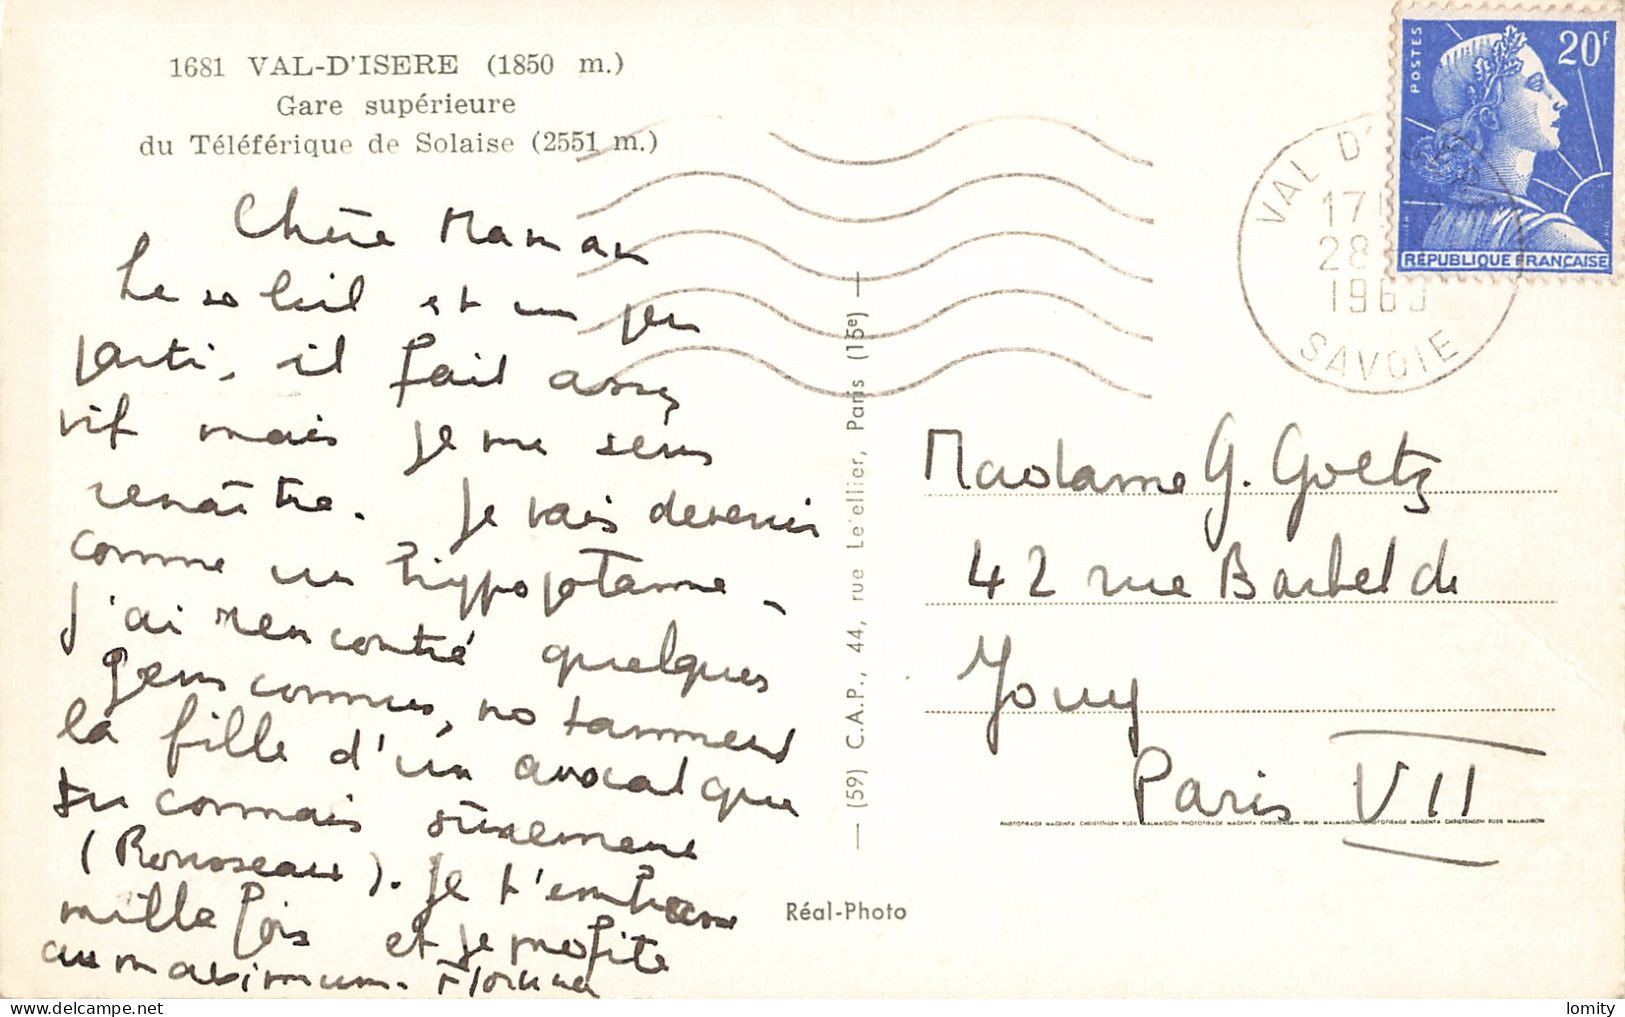 1681 VAL-D'ISERE (1850 m.)
Gare supérieure
du Téléférique de Solaise (2551 m.)
Chère Maman
Le soleil est un peu
parti, il fait assez
vif mais je me sens
renaître. Je vais devenir
comme un hippopotame -
J'ai rencontré quelques
gens connus, notamment
la fille d'un avocat que
tu connais sûrement
(Rousseau). Je t'embrasse
mille fois et je profite
au maximum.
— (59) C.A.P., 44, rue Letellier, Paris (15e) —
Réal-Photo
POSTES
20F
RÉPUBLIQUE FRANÇAISE
VAL D'
17
28
196
SAVOIE
Madame G. Goetz
42 rue Barbet de
Jouy
Paris VII
PHOTOTIRAGE MAGENTA CHRISTENSEN RUEIL MALMAISON PHOTOTIRAGE MAGENTA CHRISTENSEN RUEIL MALMAISON PHOTOTIRAGE MAGENTA CHRISTENSEN RUEIL MALMAISON
lomity